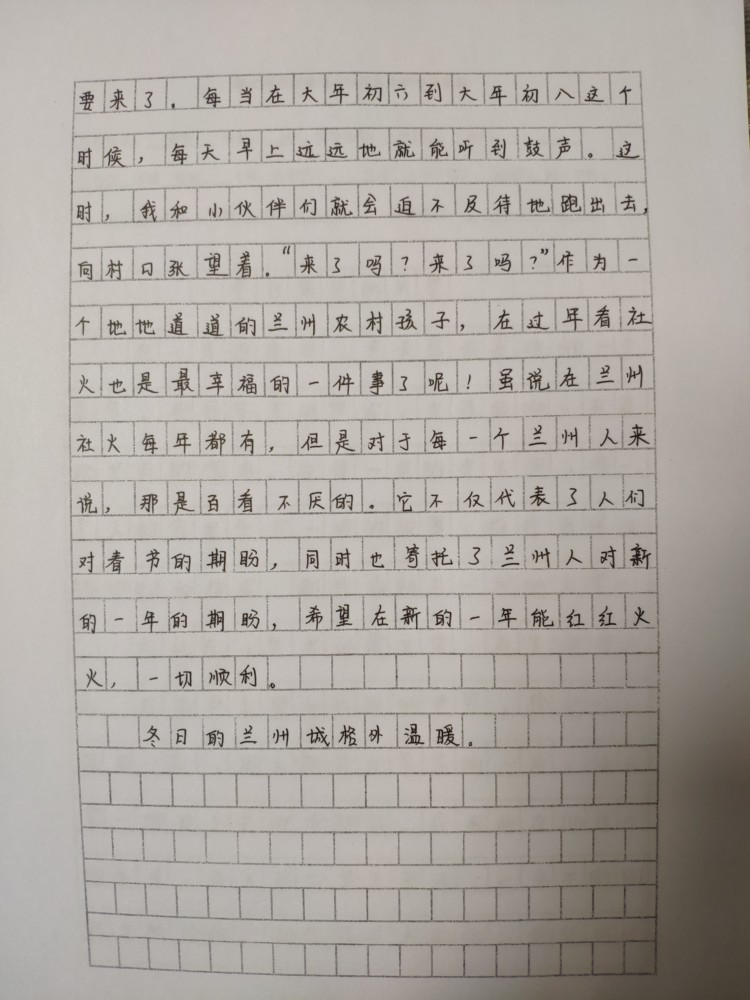 要来了。每当在大年初六到大年初八这个
时候，每天早上远远地就能听到鼓声。这
时，我和小伙伴们就会迫不及待地跑出去，
向村口张望着。“来了吗？来了吗？”作为一
个地地道道的兰州农村孩子，在过年看社
火也是最幸福的一件事了呢！虽说在兰州
社火每年都有，但是对于每一个兰州人来
说，那是百看不厌的。它不仅代表了人们
对春节的期盼，同时也寄托了兰州人对新
的一年的期盼，希望在新的一年能红红火
火，一切顺利。
冬日的兰州城格外温暖。